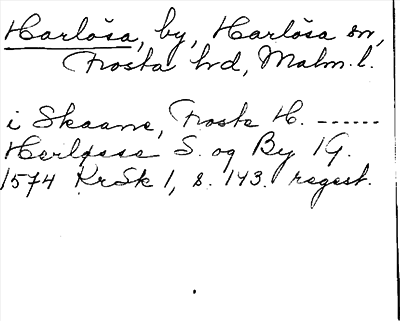 Harlösa, by, Harlösa sn,
Frosta hrd, Malm. l.
i Skaane, Froste H. ------
Herløsse S. og By 1 G.
1574 KrSk 1, s. 143. regest.